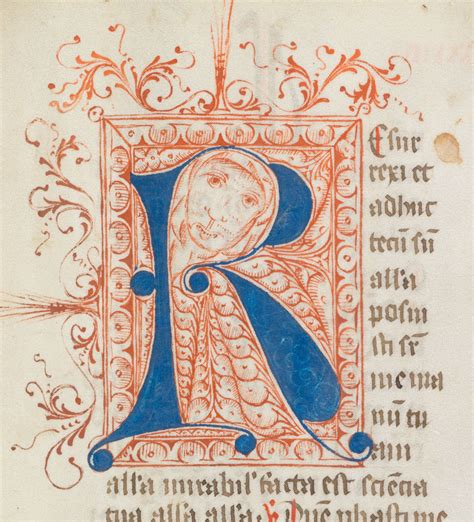 R Esur
rexi et
adhuc
tecū sū
all'a
posui
sti sr̄
me ma
nū tu
am
all'a mirabil' facta est sciēcia
tua all'a all'a Dn̄e ꝓbasti me